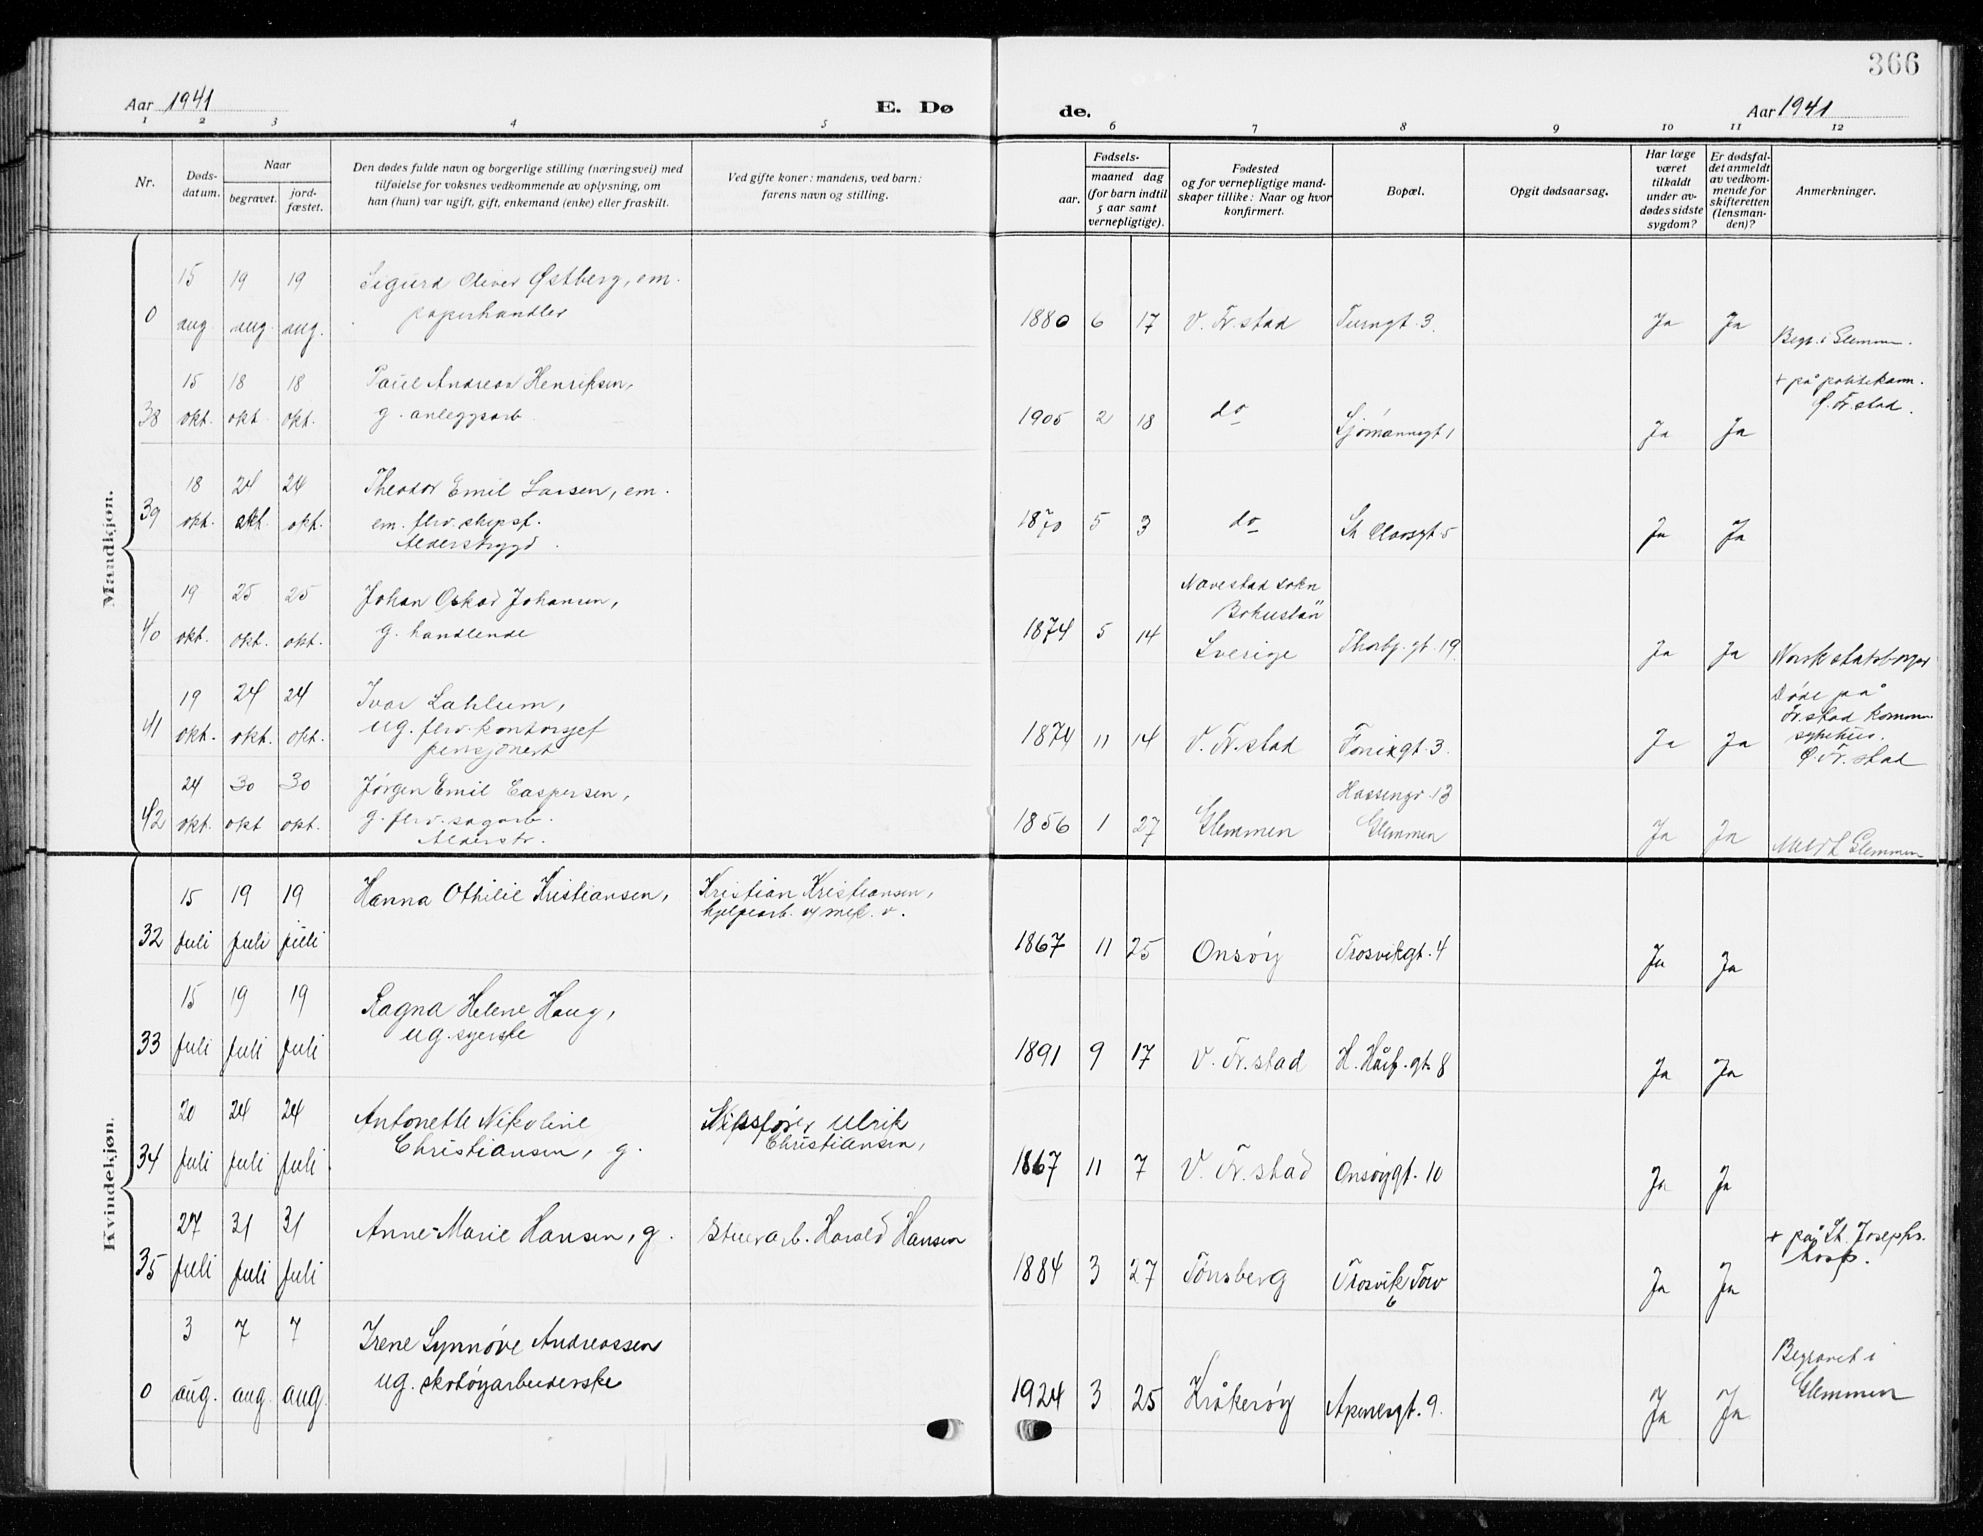 366
Aar 1941 E. Dø de. Aar 1941
1 2 3 4 5 6 7 8 9 10 11 12
Nr.
Døds-datum.
Naar
begravet.
jord-fæstet.
Den dødes fulde navn og borgerlige stilling (næringsvei) med
tilføielse for voksnes vedkommende av oplysning, om
han (hun) var ugift, gift, enkemand (enke) eller fraskilt.
Ved gifte koner: mandens, ved barn:
farens navn og stilling.
Fødsels-
aar.
maaned dag
(for barn indtil
5 aar samt
vernepligtige).
Fødested
og for vernepligtige mand-
skaper tillike: Naar og hvor
konfirmert.
Bopæl.
Opgit dødsaarsag.
Har læge
været
tilkaldt
under av-
dødes sidste
sygdom?
Er dødsfal-
det anmeldt
av vedkom-
mende for
skifteretten
(lensman-
den)?
Anmerkninger.
Mandkjøn.
0 15 aug. 19 aug. 19 aug. Sigurd Oliver Østberg, em.
papirhandler
1880 6 17 V. Fr.stad Turngt. 3. Ja Ja Begr. i Glemmen.
38 15 okt. 18 okt. 18 okt. Paul Andreas Henriksen,
g. anleggsarb.
1905 2 18 do Sjømannsgt 1 Ja Ja + på politikam.
Ø. Fr.stad.
39 18 okt. 24 okt. 24 okt. Theodor Emil Larsen, em.
em. fhv. skipsf.
Alderstrygd.
1870 5 3 do St. Olavsgt 5 Ja Ja
40 19 okt. 25 okt. 25 okt. Johan Oskar Johansen,
g. handlende
1874 5 14 Navestad sokn
Bohuslän
Sverige Thorbj. gt. 19. Ja Ja Norsk statsborger
41 19 okt. 24 okt. 24 okt. Ivar Lahlum,
ug. fhv. kontorsjef
pensjonert
1874 11 14 V. Fr.stad Fønixgt. 3. Ja Ja Døde på
Fr.stad komm.
sykehus.
Ø. Fr. stad
42 24 okt. 30 okt 30 okt. Jørgen Emil Caspersen,
g. fhv. sagarb.
Alderstr.
1856 1 27 Glemmen Hassengv. 13
Glemmen Ja Ja Meldt Glemmen
Kvindekjøn.
32 15 Juli 19 Juli 19 Juli Hanna Othilie Kristiansen, Kristian Kristiansen,
hjelpearb. v/ mek. v.
1867 11 25 Onsøy Trosvikgt. 4 Ja Ja
33 15 Juli 19 Juli 19 Juli Ragna Helene Haug,
ug. syerske
1891 9 17 V. Fr. stad H. Håf. gt. 8 Ja Ja
34 20 Juli 24 Juli 24 Juli. Antonette Nikoline
Christiansen, g. Ulrik
Christiansen,
1867 11 7 V. Fr. stad Onsøygt. 10 Ja Ja
35 27 Juli 31 Juli 31 Juli Anne-Marie Hansen, g. Stuerarb. Harald Hansen
1884 3 27 Tønsberg Trosvik Torv
6 Ja Ja + på St. Josephs.
hosp.
0 3 aug. 7 aug. 7 aug. Irene Synnøve Andreassen
ug. skotøyarbeiderske
1924 3 25 Kråkerøy Apenesgt. 9. Ja Ja
Ja Ja
Begravet i
Glemmen